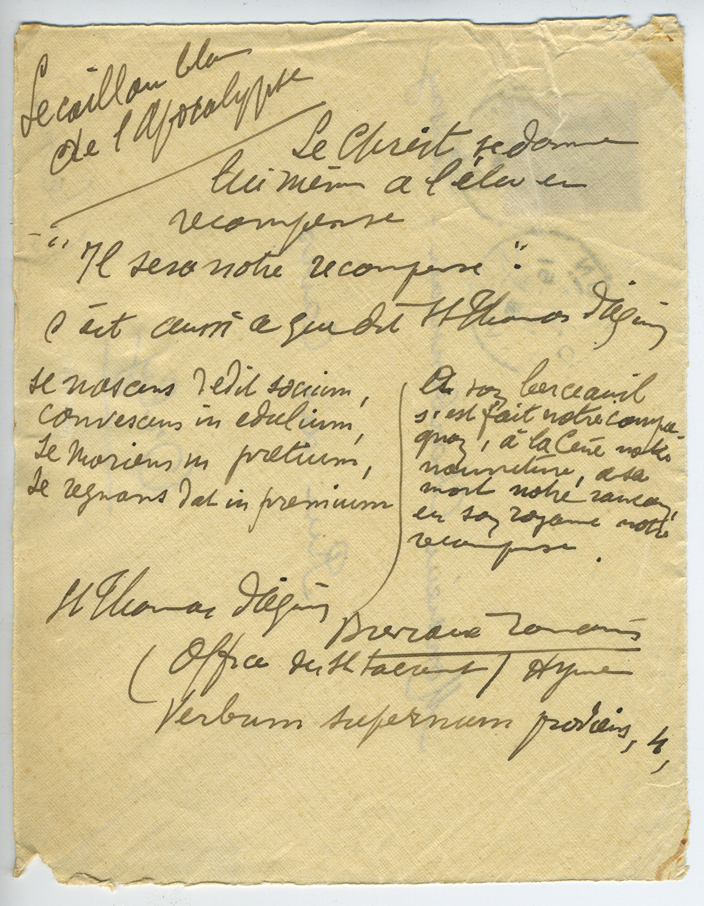 Le caillou blanc
de l'Apocalypse
Le Christ se donne
lui même a l'élu en
recompense
"Il sera notre recompense":
c'est aussi ce que dit St Thomas d'Aquin
se nascens dedit socium,
convescens in edulium,
se moriens in pretium,
se regnans dat in premium
En son berceau il
s'est fait notre compa-
gnon, à la Cène notre
nourriture, a sa
mort notre rançon,
en son royaume notre
recompense.
St Thomas d'Aquin
Breviaire romain
(Office du St Sacrement) Hymne
Verbum supernum prodiens, 4,